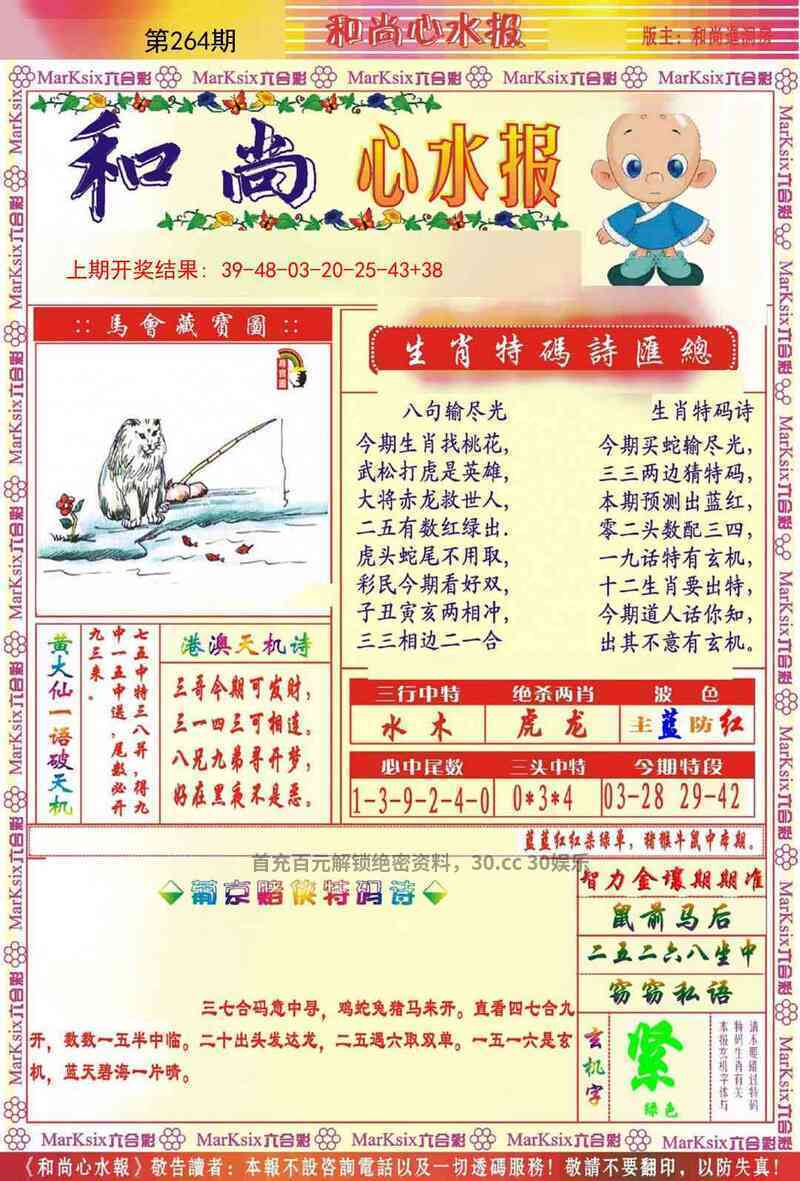 第264期
和尚心水报
版主：和尚進洞房
MarKsix六合彩 MarKsix六合彩 MarKsix六合彩 MarKsix六合彩 MarKsix六合彩
和尚心水报
上期开奖结果: 39-48-03-20-25-43+38
:: 馬會藏寶圖 ::
生肖特碼詩匯總
八句输尽光
今期生肖找桃花,
武松打虎是英雄,
大将赤龙救世人,
二五有数红绿出.
虎头蛇尾不用取,
彩民今期看好双,
子丑寅亥两相冲,
三三相边二一合
生肖特码诗
今期买蛇输尽光,
三三两边猜特码,
本期预测出蓝红,
零二头数配三四,
一九话特有玄机,
十二生肖要出特,
今期道人话你知,
出其不意有玄机。
黄大仙一语破天机
七五中特三八开，得九
中一五中送，尾数必开
九三来。
港澳天机诗
三哥今期可发财，
三一四三可相连。
八兄九弟寻开梦，
好在黑夜不是恶。
三行中特 绝杀两肖 波色
水木 虎龙 主蓝防红
必中尾数 三头中特 今期特段
1-3-9-2-4-0 0*3*4 03-28 29-42
蓝蓝红红杀绿单，猪猴牛鼠中本期。
首充百元解锁绝密资料，30.cc 30娱乐
葡京赌侠特码诗
三七合码意中寻，鸡蛇兔猪马来开。直看四七合九
开，数数一五半中临。二十出头发达龙，二五遇六取双单。一五一六是玄
机，蓝天碧海一片晴。
智力金讓期期准
鼠前马后
二五二六八坐中
窃窃私语
玄机字
紧
绿色
请不要错过特码
特码生肖有关
本报玄机字体与
MarKsix六合彩 MarKsix六合彩 MarKsix六合彩 MarKsix六合彩 MarKsix六合彩
《和尚心水報》敬告讀者：本報不設咨詢電話以及一切透碼服務！敬請不要翻印，以防失真！